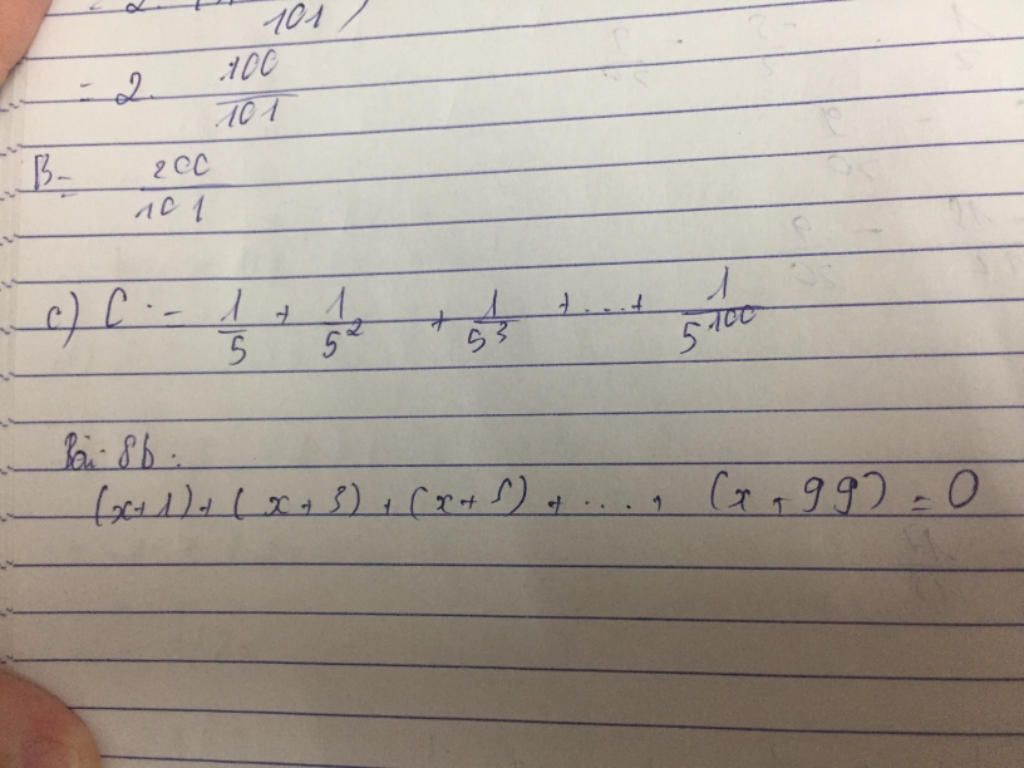 101)
= 2. 100/101
B = 200/101
c) C = 1/5 + 1/5² + 1/5³ + ... + 1/5¹⁰⁰
Bài 8b:
(x+1) + (x+3) + (x+5) + .... + (x+99) = 0